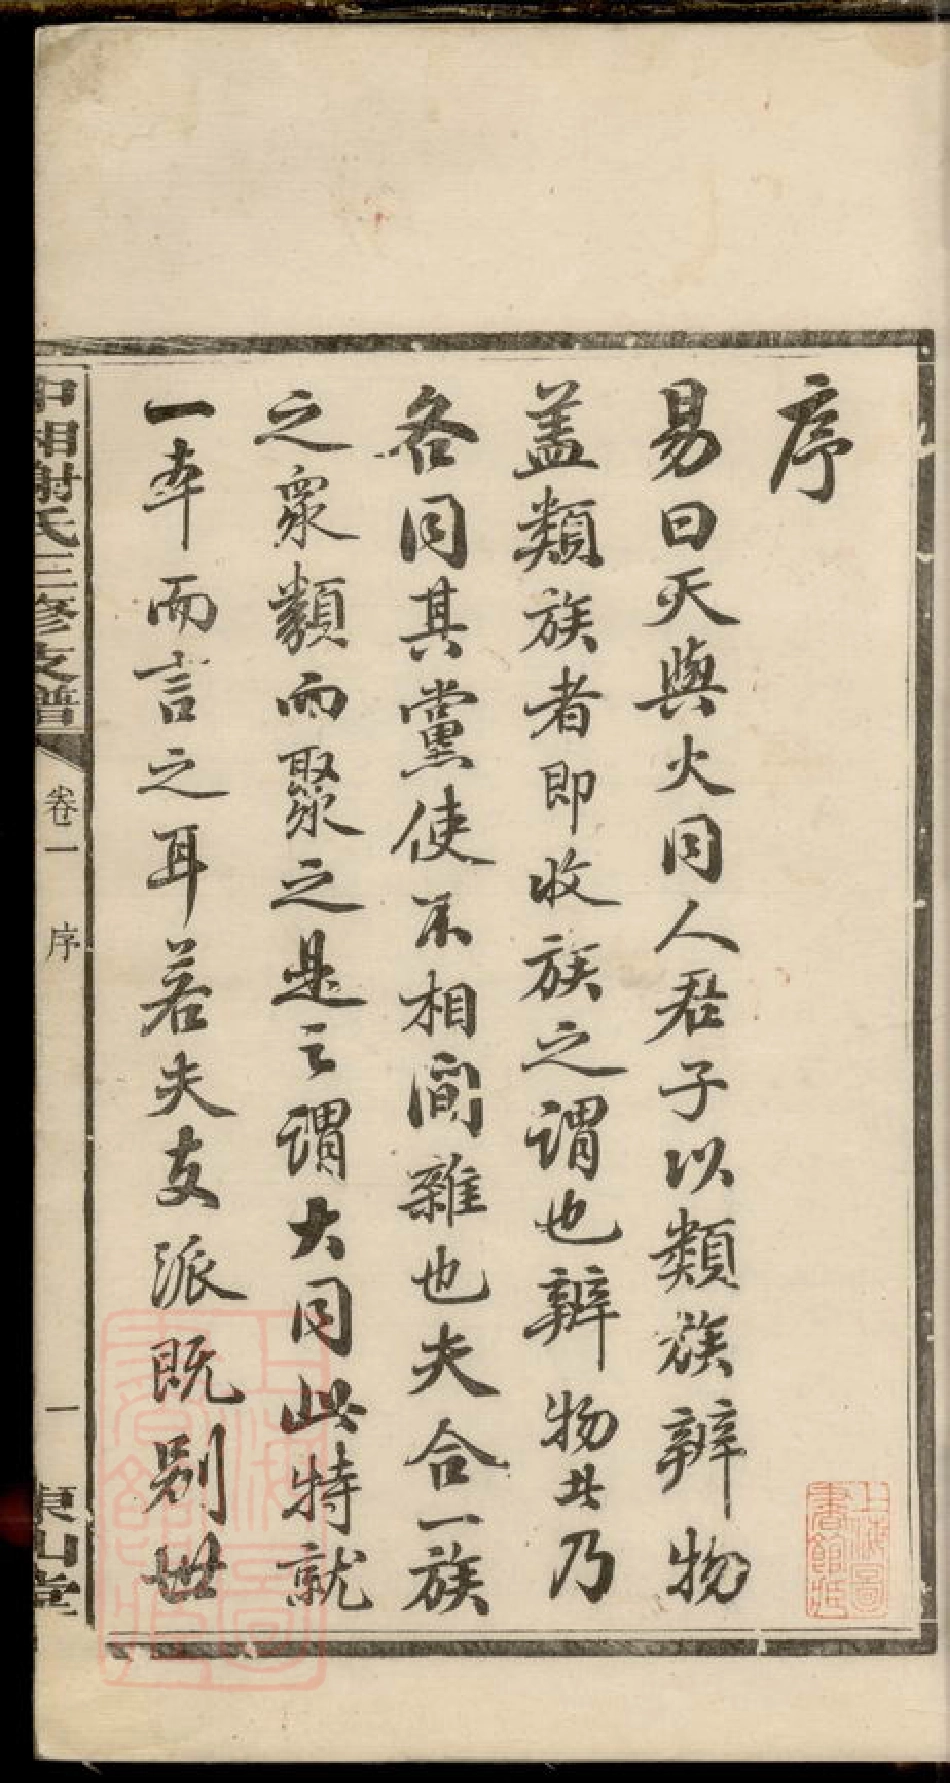 序
易曰天與火同人君子以類族辨物
盖類族者即收族之謂也辨物者乃
各同其黨使不相間雜也夫合一族
之衆類而聚之是之謂大同此特就
一本而言之耳若夫支派既别世
中湘謝氏三修支譜
卷一 序
一
東山堂
上海圖書館藏
上海圖書館藏